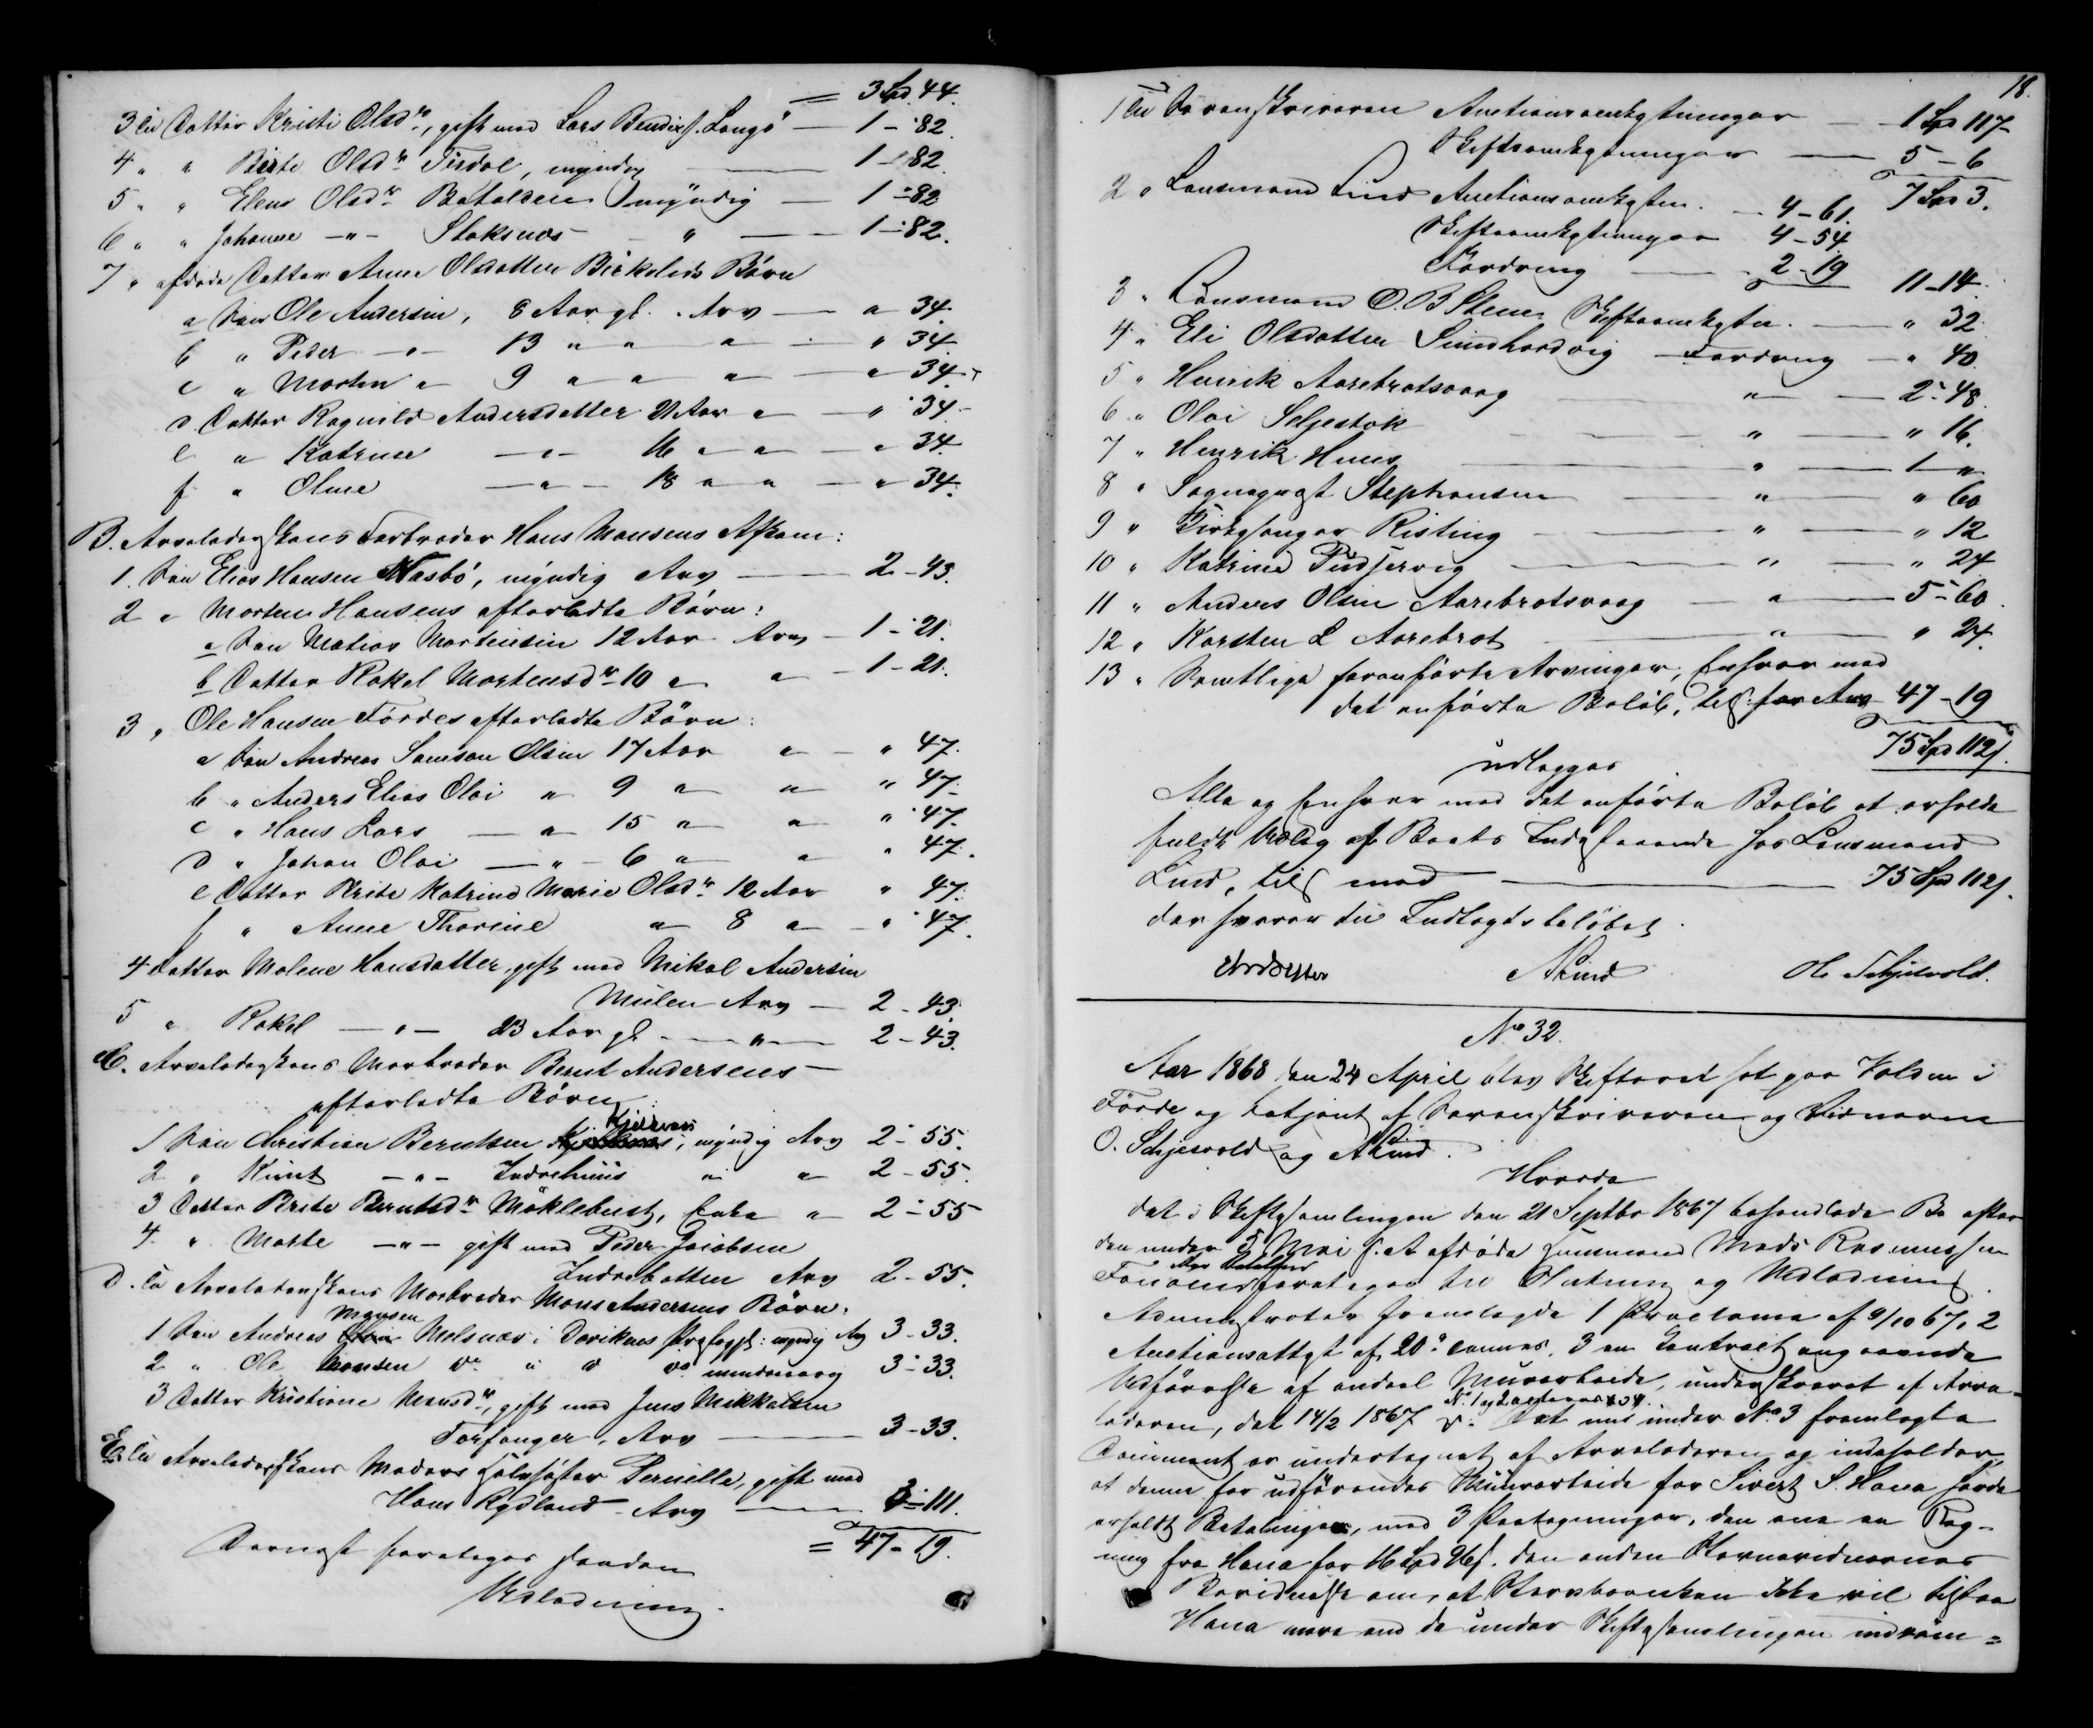 = 3 Spd 44.
3 til Datter Kristi Olsdr, gift med Lars Bendixs. Langø — 1 - 82.
4 " " Birte Olsdr Tisdal, myndig — 1 - 82.
5 " " Elens Olsdr Bataldens myndig — 1 - 82
6 " " Johanne — " — Stoksnæs — " — 1 - 82.
7 " afdøde Datter Anne Olsdatter Birkelids Børn
a Søn Ole Andersen, 8 Aar gl. Arv — " 34.
b " Peder — " — 13 " " " — " 34
c " Morten " 9 " " " — " 34.
d Datter Ragnild Andersdatter 21 Aar " — " 34
e " Katrine — " — 16 " " — " 34.
f " Oline — " — 18 " " — " 34.
B. Arveladerskens Farbroder Hans Monsens Afkom:
1. Søn Elias Hansen Nasbø, myndig Arv — 2 - 43.
2 " Morten Hansens efterladte Børn:
a Søn Matias Mortensen 12 Aar Arv — 1 - 21.
b Datter Rakel Mortensdr 10 " " — 1 - 21.
3 " Ole Hansen Førdes efterladte Børn:
a Søn Andreas Samson Olsen 17 Aar " — " 47.
b " Anders Elias Olai " 9 " " " 47.
c " Hans Lars — " 15 " " " 47.
d " Johan Olai — " — 6 " " " 47.
e Datter Brite Katrine Marie Olsdr 12 Aar " 47.
f " Anne Thorine " 8 " — " 47.
4 Datter Malene Hansdatter, gift med Mikal Andersen
Mulen Arv — 2 - 43.
5 " Rakel — " — 23 Aar gl — " — 2 - 43.
C. Arveladerskens Morbroder Bernt Andersens
efterladte Børn:
1 Søn Christian Berntsen Kjelkenes, myndig Arv 2 - 55.
2 " Knut — " — Indrehuus " " 2 - 55.
3 Datter Brite Berntsdr Møklebust, Enke " 2 - 55
4 " Marte — " — gift med Peder Jacobsen
Indrebotten Arv 2 - 55.
D. til Arveladerskens Morbroder Mons Andersens Børn:
1 Søn Andreas Monsen Melsnæs i Daviknes Præstegjl: myndig Arv 3 - 33.
2 " Ole Monsen do " " do mindreaarig 3 - 33.
3 Datter Kristiane Monsdr, gift med Jens Mikkalsen
Torfanger, Arv — 3 - 33.
E til Arveladerskens Moders Halvsøster Pernille, gift med
Hans Rysland Arv — 3 - 111.
= 47 - 19.
Dernæst foretoges saadan
Udlodning.
18.
1 til Sorenskriveren Auctionsomkostninger — 1 Spd 117
Skifteomkostninger — 5 - 6
7 Spd 3.
2 " Lensmand Lind Auctionsomkostn. — 4 - 61.
Skifteomkostninger 4 - 54
Fordring — 2 - 19 11 - 14.
3 " Lensmand O. B. Steen Skifteomkostn. — " 32
4 " Eli Olsdatter Simdhordvig Fordring — " 40
5 " Henrik Aarebrotsvaag — " — 2 - 48.
6 " Olai Seljestok — " — " 16.
7 " Henrik Huus — " — 1 "
8 " Sogneprest Stephansen — " — " 60
9 " Kirkesanger Risting — " — " 12
10 " Katrine Pudservig — " — " 24
11 " Anders Olsen Aarebrotsvaag — " — 5 - 60.
12 " Karsten L Aarebrot — " — " 24.
13 " Samtlige foranførte Arvinger, Enhver med
det anførte Beløb, tils. for Arv 47 - 19
75 Spd 112 s.
udlægges
Alle og Enhver med det anførte Beløb at erholde
fuldt Udlæg af Boets Indestaaende hos Lensmand
Lind, tils. med — 75 Spd 112 s.
der svarer til Indtægtsbeløbet.
NLind Ole Schjesvold.
No 32.
Aar 1868 den 24 April blev Skifteret sat paa Halsen i
Førde og betjent af Sorenskriveren og Vidnerne
O. Schjesvold og NLind.
Hvorda
det i Skiftesamlingen den 21 Septbr 1867 behandlede Bo efter
den under 5 Mai s. A. afdøde Huusmand Mads Rasmussen
foretages til Slutning og Udlodning
Administrator fremlagde 1 Proclama af 9/10 67, 2
Auctionsattest af 20de dennes, 3 en Contract angaaende
Udførelse af endeel Muurarbeide, underskrevet af Arve-
laderen, dat 14/2 1867. No 1 og 2 Det nu under No 3 fremlagte
Document er undertegnet af Arveladeren og indeholder,
at denne for udførendes Muurarbeide for Sivert S. Hana havde
erholdt Betalingen, med 3 Paategninger, den ene en Reg-
ning fra Hana for 16 Spd 96 s. den anden Stevnevidnernes
Bevidnelse om, at Stervboenken ikke vil tilstaa
Hana mere end de under Skiftesamlingen indrøm=